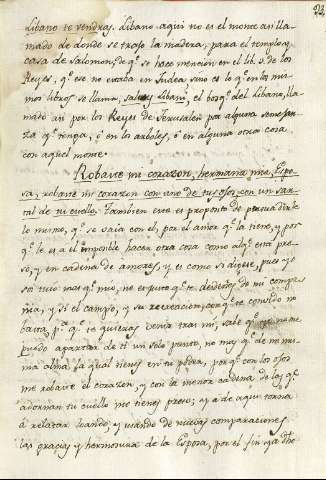 Libano te vendras. Libano aqui no es el monte asi lla-
mado de donde se trajo la madera, para el templo y
casa de Salomon, de qe. se hace mencion en el lib. 3. de los
Reyes, qe. ese no estaba en Judea sino es lo qe. en los mis-
mos libros se llama, saltus Libani, el bosqe. del Libano, lla-
mado asi por los Reyes de Jerusalen por alguna semejan-
za qe. tenga, ó en los arboles, ó en alguna otra cosa
con aquel monte.
Robaste mi corazon, hermana mia, Espo-
sa, robaste mi corazon con uno de tus ojos, con un sar-
tal de tu cuello. Tambien esto es proposito de persuadirle
lo mismo, qe. se vaia con el, por el amor qe. la tiene, y por
qe. le es a el imposible hacer otra cosa como qe. está pre-
so, y en cadena de amores, y es como si dijese, pues yo
soi tuio mas qe. mio, no es justo qe. te desdeñes de mi compa-
ñia, y si el campo, y su recreacion, con qe. te convido no
basta, pa. qe. te quieras venir tras mi, sabe qe. yo no me
puedo apartar de ti un solo punto, no mas qe. de mi mis-
ma alma, la qual tienes en tu poder, por qe. con los ojos
me robaste el corazon, y con la menor cadena de las qe.
adornan tu cuello me tienes preso; y a de aqui torna
á relatar loando, y usando de nuevas comparaciones
las gracias y hermosura de la Esposa, por el fin ya dho